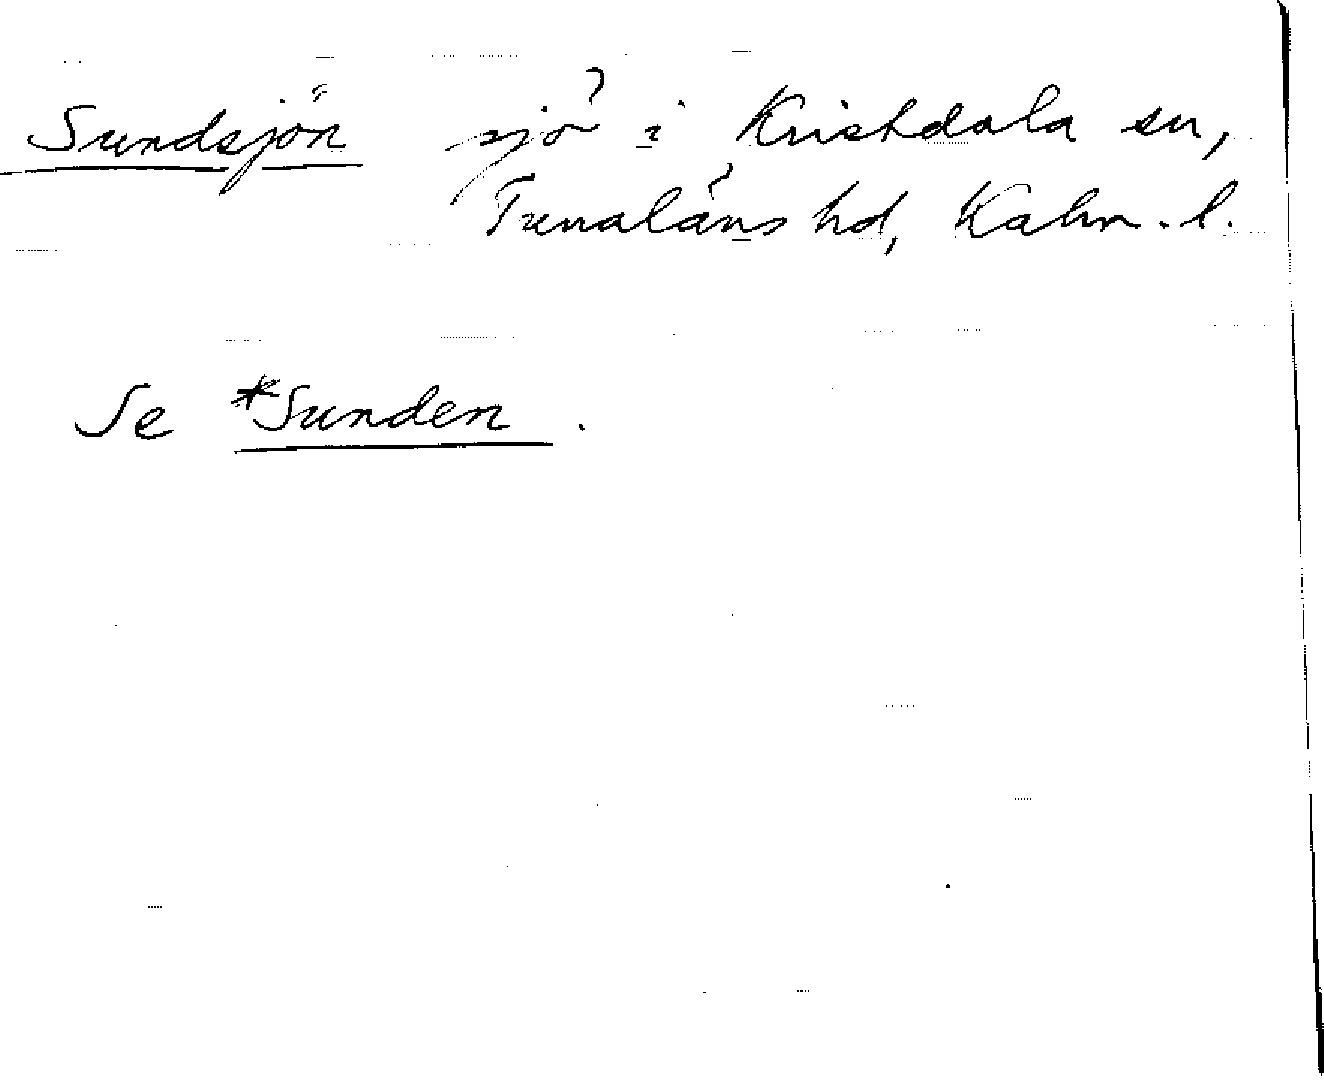 Sundsjön sjö i Kristdala sn,
Tunaläns hd, Kalm. l.
Se *Sunden.